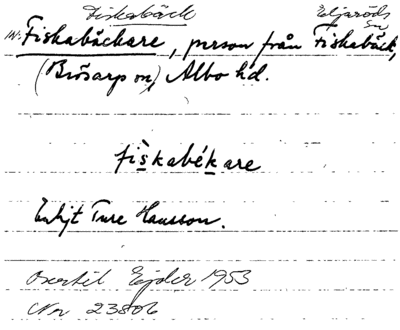 Fiskabäck Eljaröds sn
m. Fiskabäckare, person från Fiskabäck,
(Brösarps sn) Albo hd.
fiskabékare
Enligt Ture Hansson.
Nr 23806